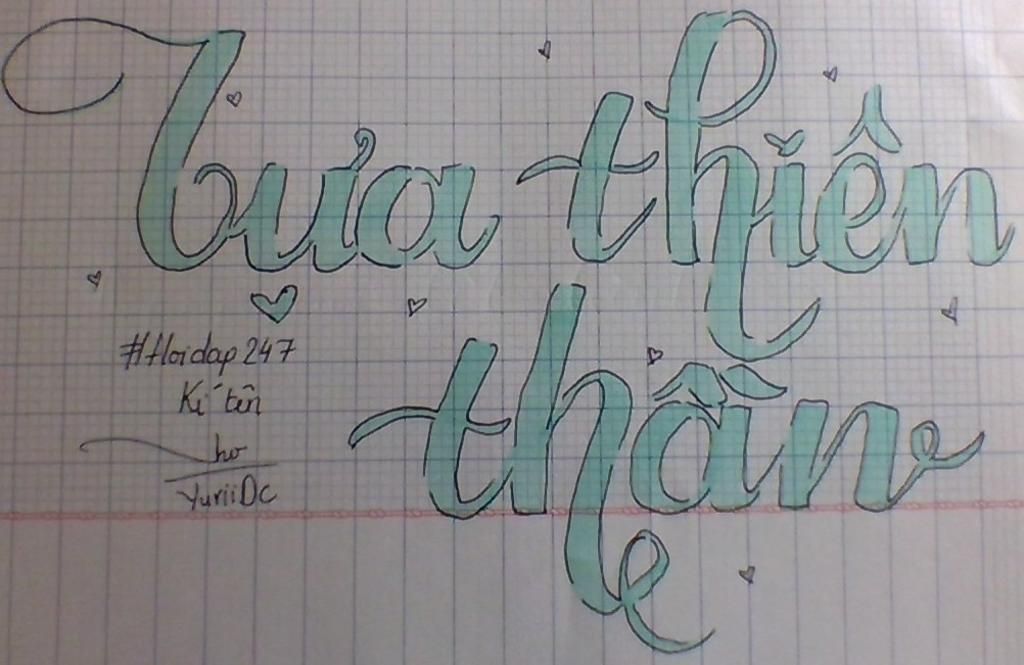 Lửa thiên
thần
#Hoidap247
Kí tên
YuriiDc